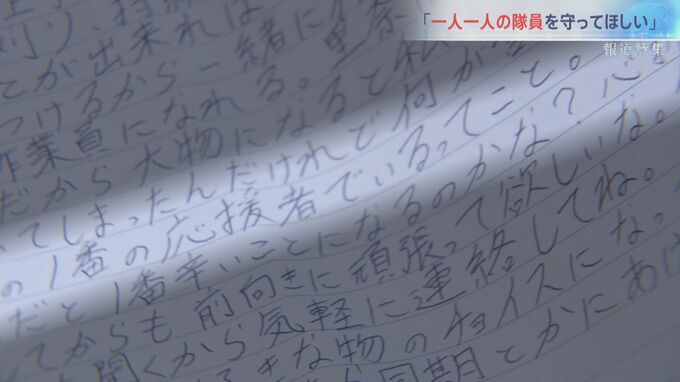 「一人一人の隊員を守ってほしい」
報道特集
とが出来れば
つけるから一緒に
作業員になれる。
だから大物になると私
いてしまったんだけれど何か
の1番の応援者でいるってこと。
だと1番辛いことになるのかな?心
てからも前向きに頑張って欲しいな。
聞くから気軽に連絡してね。
きな物のチョイスになっ
同期とかにあげ